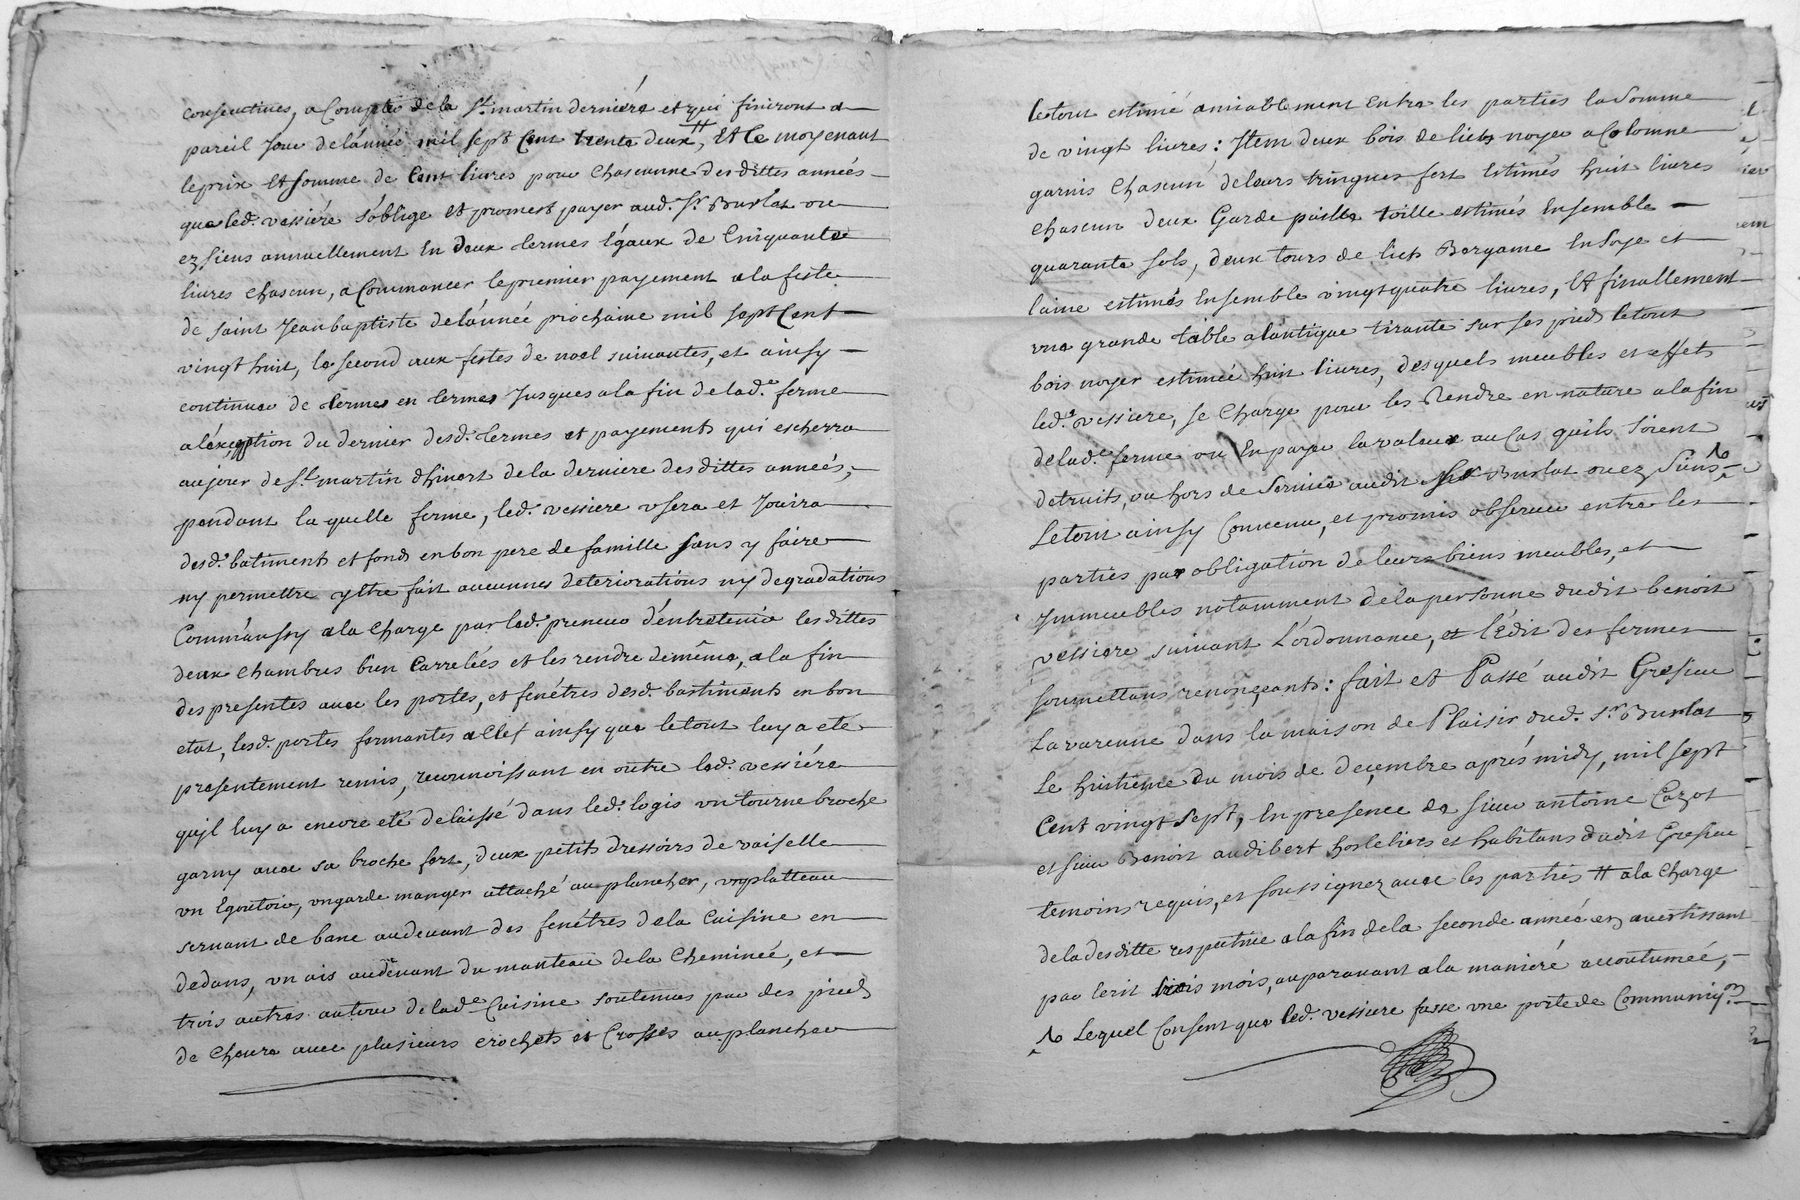 consecutives, a Compter dela St. martin derniére et qui finiront a
pareil Jour de l'année mil sept Cent trente deux, # Et Ce moyenant
le prix Et somme de Cent livres pour Chascunne des dittes années
que led. vessiére s'oblige et promest payer aud. Sr. Burlat ou
ez siens annuellement En deux termes Egaux de Cinquante
livres chascun, a Commancer le premier payement a la feste
de saint Jean baptiste de l'année prochaine mil sept Cent
vingt huit, le second aux festes de noel suivantes, et ainsy
continuer de termes en termes Jusques a la fin de lad.e ferme
a l'exception du dernier desd. termes et payements qui escherra
au jour de St. martin d'hivert de la derniere des dittes années,
pendant la quelle ferme, led. vessiere usera et Jouira
desd. batiments et fonds en bon pere de famille sans y faire
ny permettre y etre fait aucunnes deteriorations ny degradations
Comm'aussy a la charge par led. preneur d'entretenir les dittes
deux chambres bien Carrelées et les rendre de même, a la fin
des presentes avec les portes, et fenétres desd. bastiments en bon
etat, lesd. portes fermantes a Clef ainsy que le tout luy a eté
presentement remis, reconnoissant en outre led. vessiére
qu'jl luy a encore eté delaissé dans led. logis un tourne broche
garny avec sa broche fert, deux petits dressoirs de vaiselle
un Egoutoir, un garde manger attaché au plancher, un platteau
servant de banc au devant des fenétres de la Cuisine en
dedans, un ais au devant du manteau de la Cheminée, et
trois autres autour de lad.e Cuisine soutenus par des pieds
de Chevre avec plusieurs crochets et Crosses au plancher
le tout estimé amiablement Entre les parties la somme
de vingt livres; Jtem deux bois de licts noyer a Colomne
garnis Chascun de leurs tringues fert Estimés huit livres
chascun deux Garde paille toille estimés Ensemble
quarante sols, deux tours de lict Bergame En soye et
laine estimés Ensemble vingt quatre livres, Et finallement
une grande table a lantique tirante sur ses pieds le tout
bois noyer estimée huit livres, desquels meubles et effets
led.t vessiere, se Charge pour les Rendre en nature a la fin
de lad.e ferme ou En payer la valeur au Cas quils soient
detruits, ou hors de service audit Burlat ou ez siens
Le tout ainsy Convenu, et promis observer entre les
parties par obligation de leurs biens meubles, et
Jmmeubles notamment de la personne dudit benoit
vessiere suivant L'ordonnance, et l'Edit des fermes
soumettans renonçeants: fait et Passé audit Gresieu
Lavarenne dans la maison de Plaisir dud. Sr. Burlat
Le huitiéme du mois de deçembre aprés midy, mil sept
Cent vingt sept, En presence de sieur antoine Cazot
et sieur Benoit audibert hosteliers et habitans dudit Gresieu
temoins requis, et soussignez avec les parties # a la Charge
de la desditte respective a la fin de la seconde année en avertissant
par Ecrit trois mois, auparavant a la maniére accoutumée,
Lequel Consent que led. vessiere fasse une porte de Communi.on